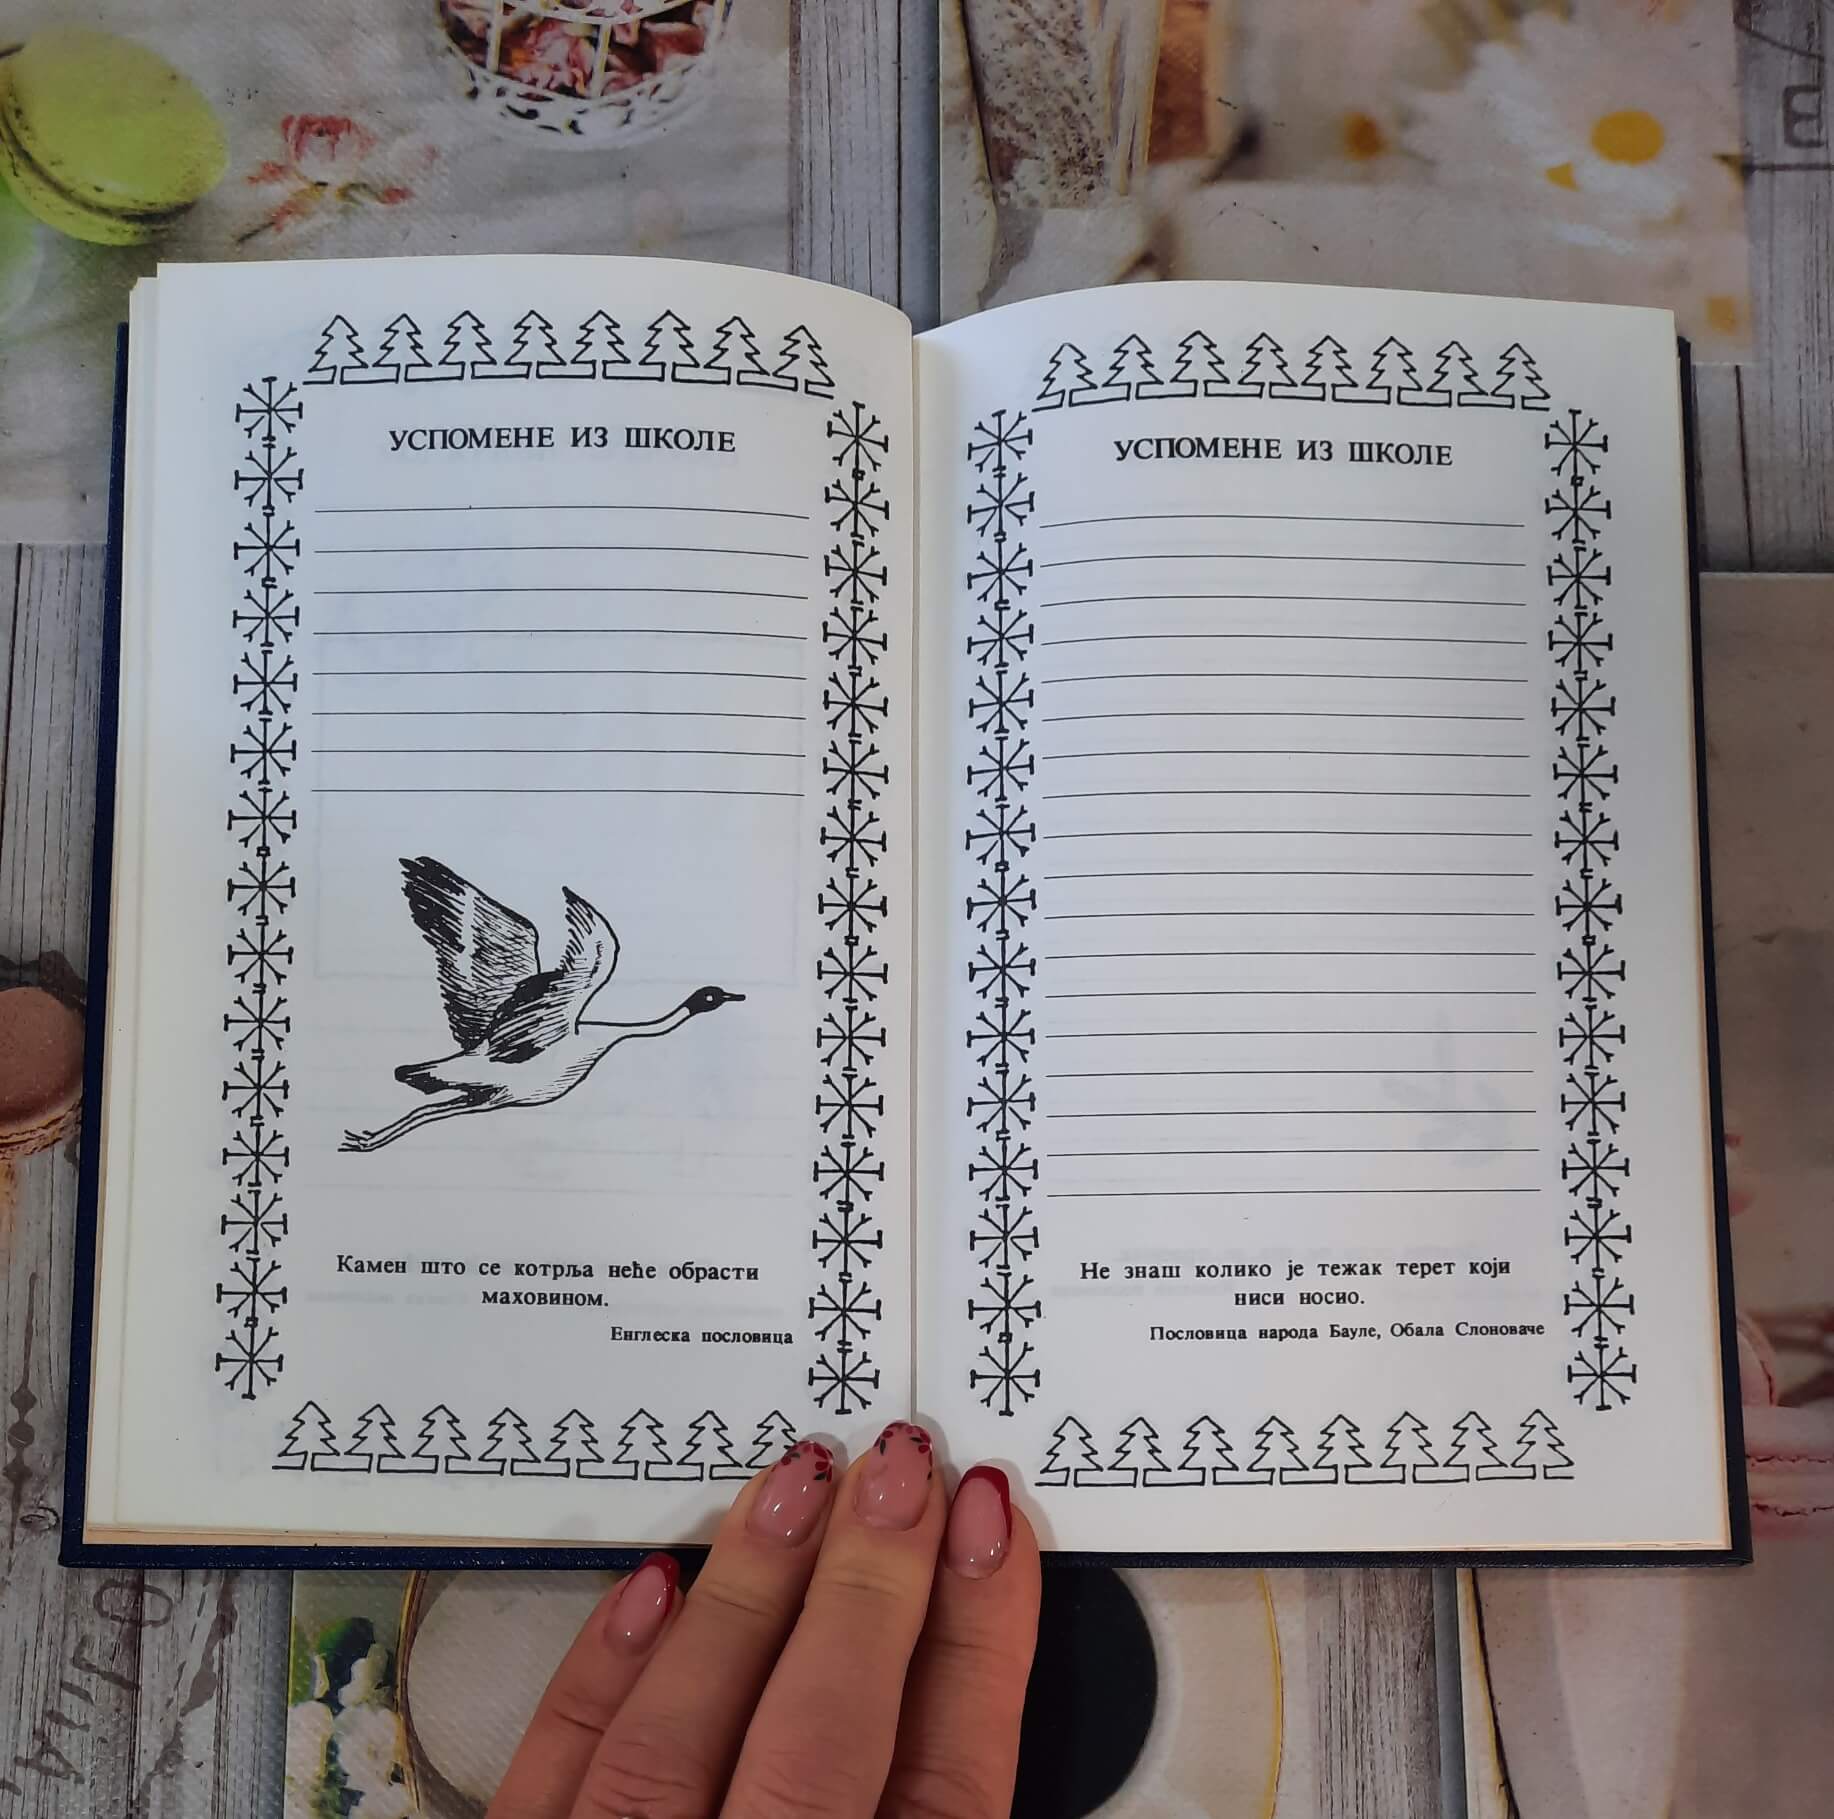 УСПОМЕНЕ ИЗ ШКОЛЕ
Камен што се котрља неће обрасти
маховином.
Енглеска пословица
УСПОМЕНЕ ИЗ ШКОЛЕ
Не знаш колико је тежак терет који
ниси носио.
Пословица народа Бауле, Обала Слоноваче